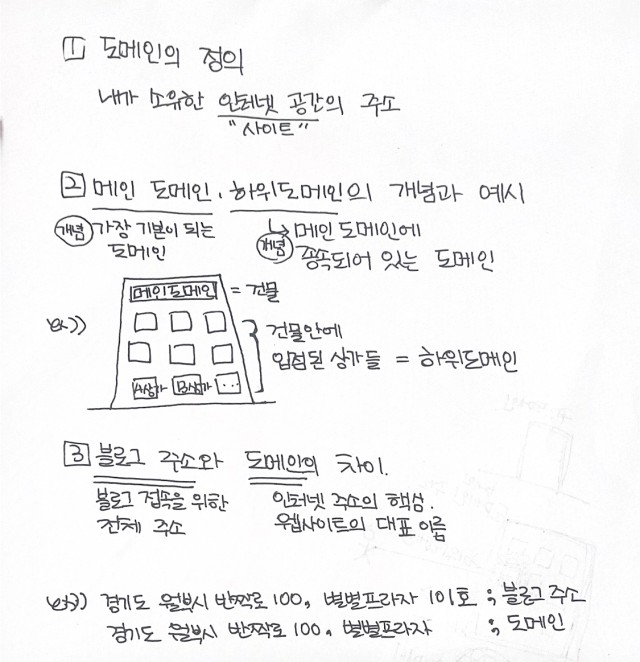 1 도메인의 정의
내가 소유한 인터넷 공간의 주소
"사이트"
2 메인 도메인, 하위도메인의 개념과 예시
개념 가장 기본이 되는
도메인
개념 ↳ 메인 도메인에
종속되어 있는 도메인
메인도메인 = 건물
ex))
건물안에
입점된 상가들 = 하위도메인
A상가 B상가 ...
3 블로그 주소와 도메인의 차이.
블로그 접속을 위한
전체 주소
인터넷 주소의 핵심.
웹사이트의 대표 이름
ex)) 경기도 월부시 반짝로 100, 별별프라자 101호 ; 블로그 주소
경기도 월부시 반짝로 100, 별별프라자 ; 도메인